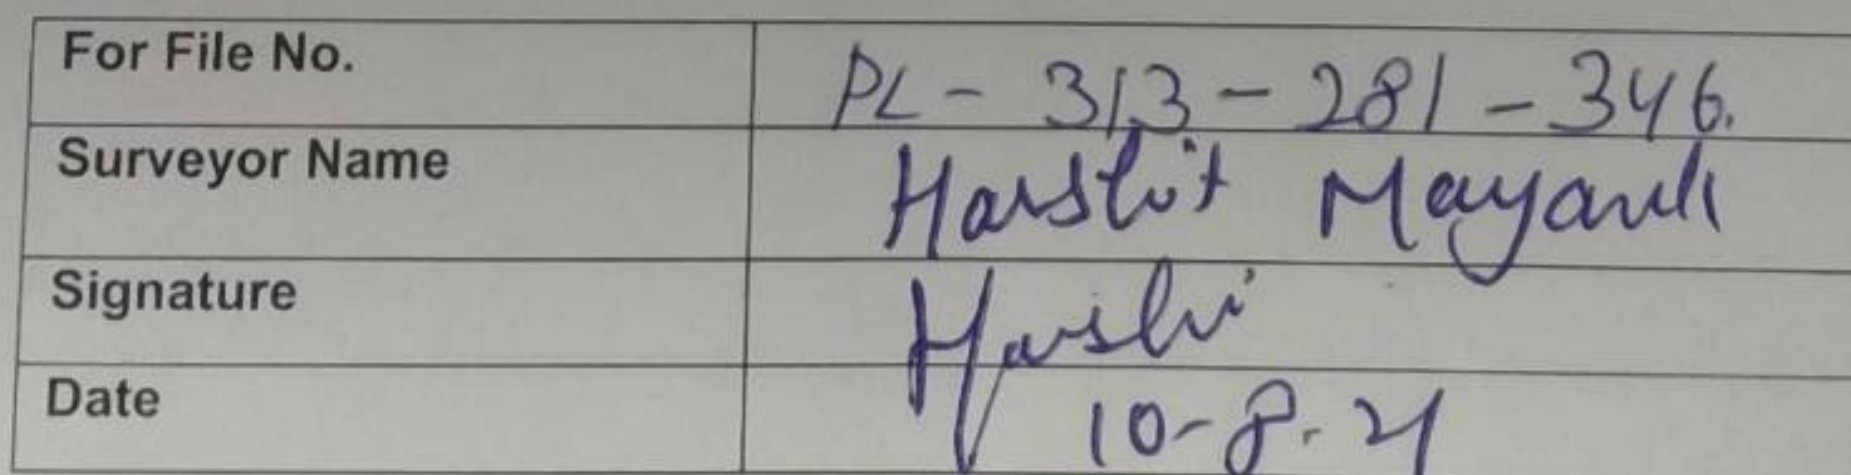 For File No. PL - 313 - 281 - 346.
Surveyor Name Harshit Mayank
Signature Harshi
Date 10-8-21